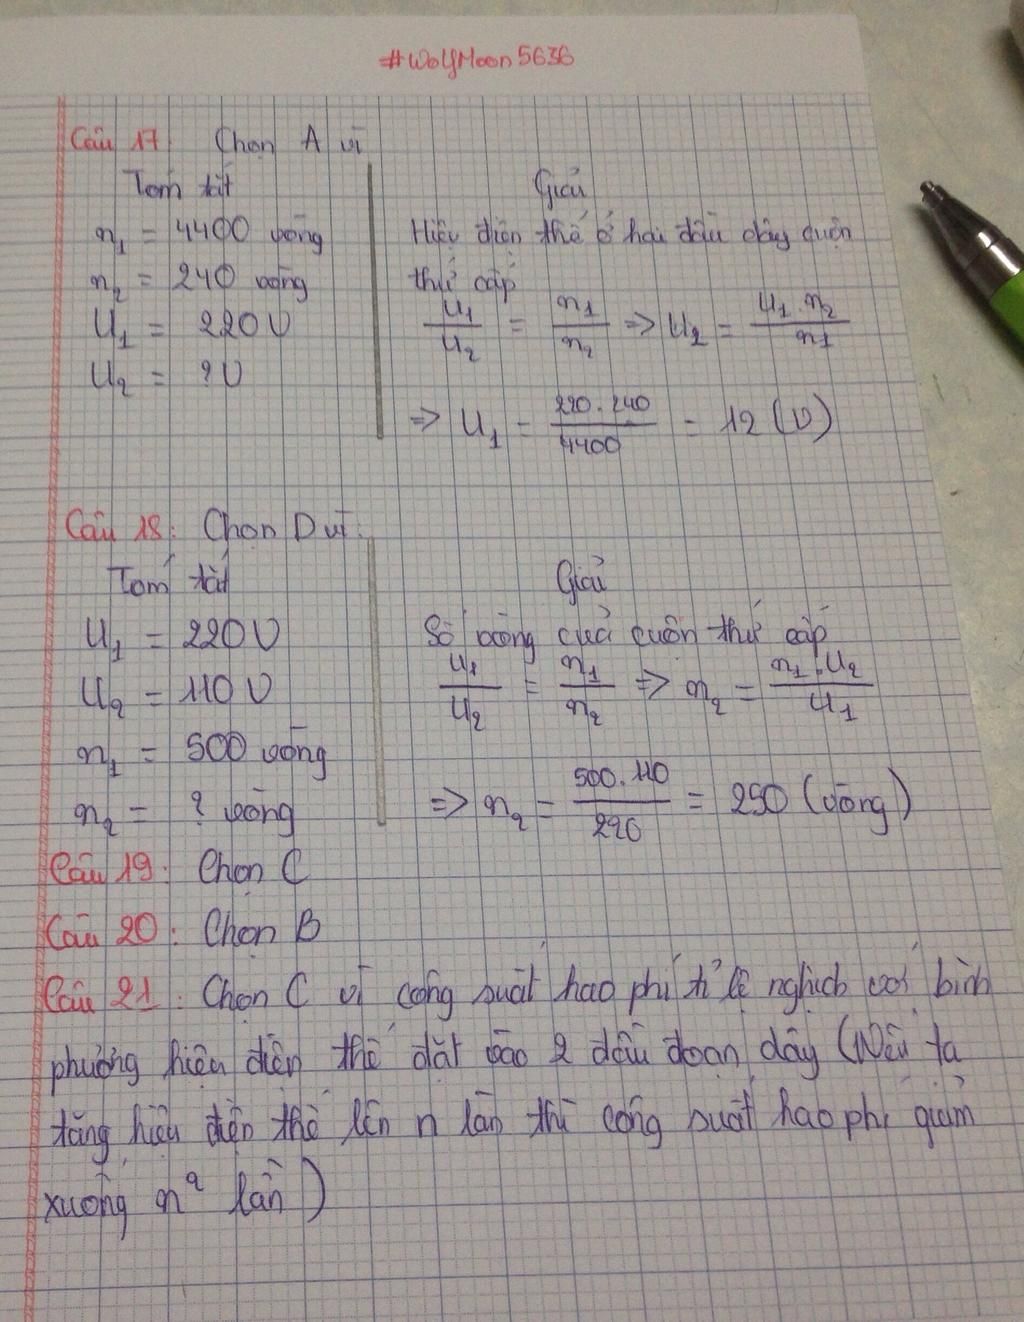 #WolfMoon5636
Câu 17: Chọn A vì
Tóm tắt
n₁ = 4400 vòng
n₂ = 240 vòng
U₁ = 220V
U₂ = ?V
Giải
Hiệu điện thế ở hai đầu dây cuộn
thứ cấp
U₁/U₂ = n₁/n₂ => U₂ = U₁.n₂/n1
=> U₁ = 220.240/4400 = 12 (V)
Câu 18: Chọn D vì.
Tóm tắt
U₁ = 220V
U₂ = 110V
n₁ = 500 vòng
n₂ = ? vòng
Giải
Số vòng của cuộn thứ cấp
U₁/U₂ = n₁/n₂ => n₂ = n₁.U₂/U₁
=> n₂ = 500.110/220 = 250 (vòng)
Câu 19: Chọn C
Câu 20: Chọn B
Câu 21: Chọn C vì công suất hao phí tỉ lệ nghịch với bình
phương hiệu điện thế đặt vào 2 đầu đoạn dây (Nếu ta
tăng hiệu điện thế lên n lần thì công suất hao phí giảm
xuống n² lần)